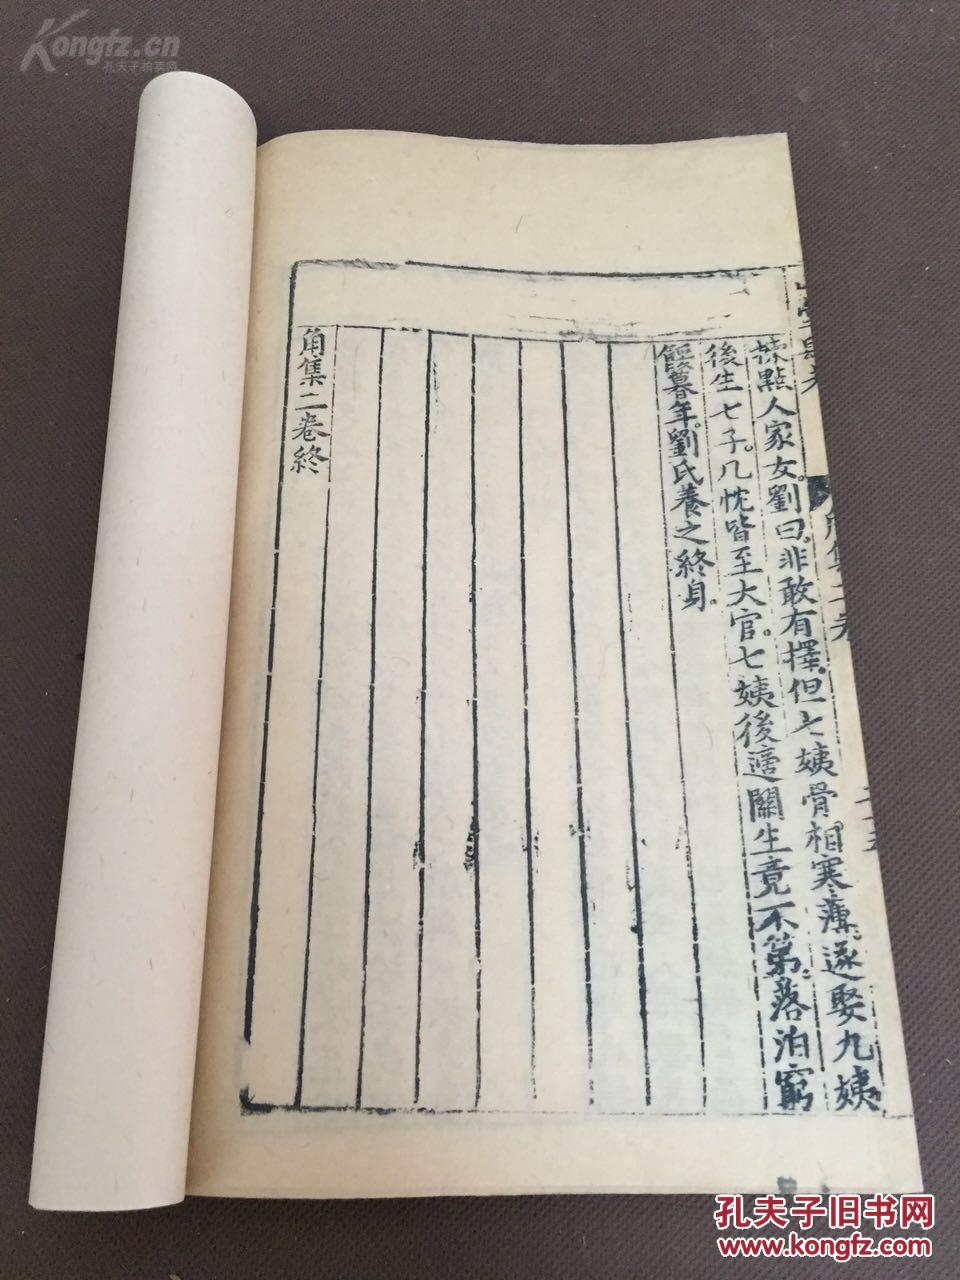 Kongfz.cn
孔夫子拍卖网
揀點人家女。劉曰。非敢有擇。但七姨骨相寒薄。遂娶九姨
後生七子。几忱皆至大官。七姨後適關生竟不第。落泊窮
餓暮年。劉氏養之終身。
角集二卷終
角集二卷
二十五
孔夫子旧书网
www.kongfz.com